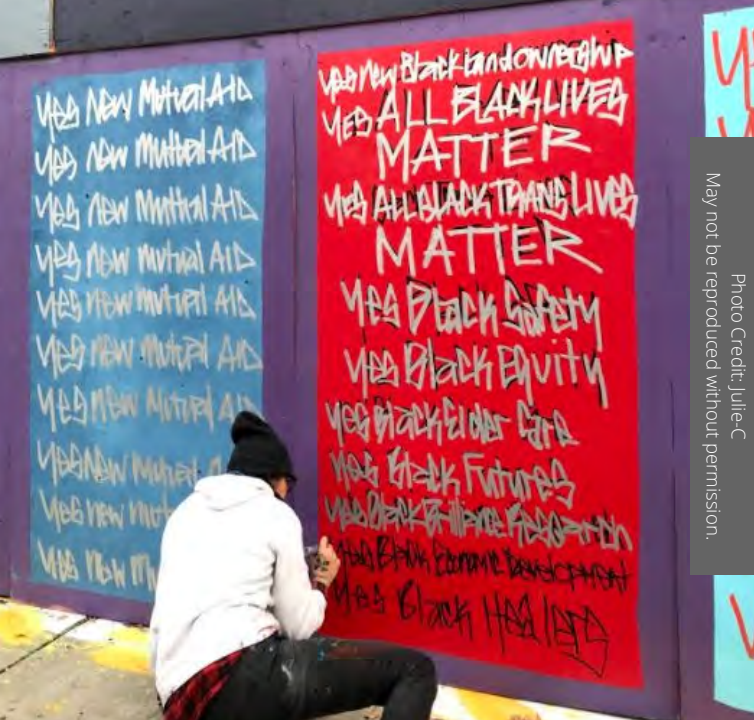 Yes New Mutual AID
Yes new Mutual AID
Yes new Mutual AID
yes new mutual AID
yes new mutual AID
yes new mutual AID
yes new mutual AID
yes New mutual
yes new mut
yes New M
yes new Black land ownership
yes ALL BLACK LIVES
MATTER
yes ALL BLACK TRANS LIVES
MATTER
yes Black Safety
yes Black Equity
yes Black Elder Care
yes Black Futures
yes Black Brilliance Research
yes Black Economic Development
yes Black Healers
Photo Credit: Julie-C
May not be reproduced without permission.